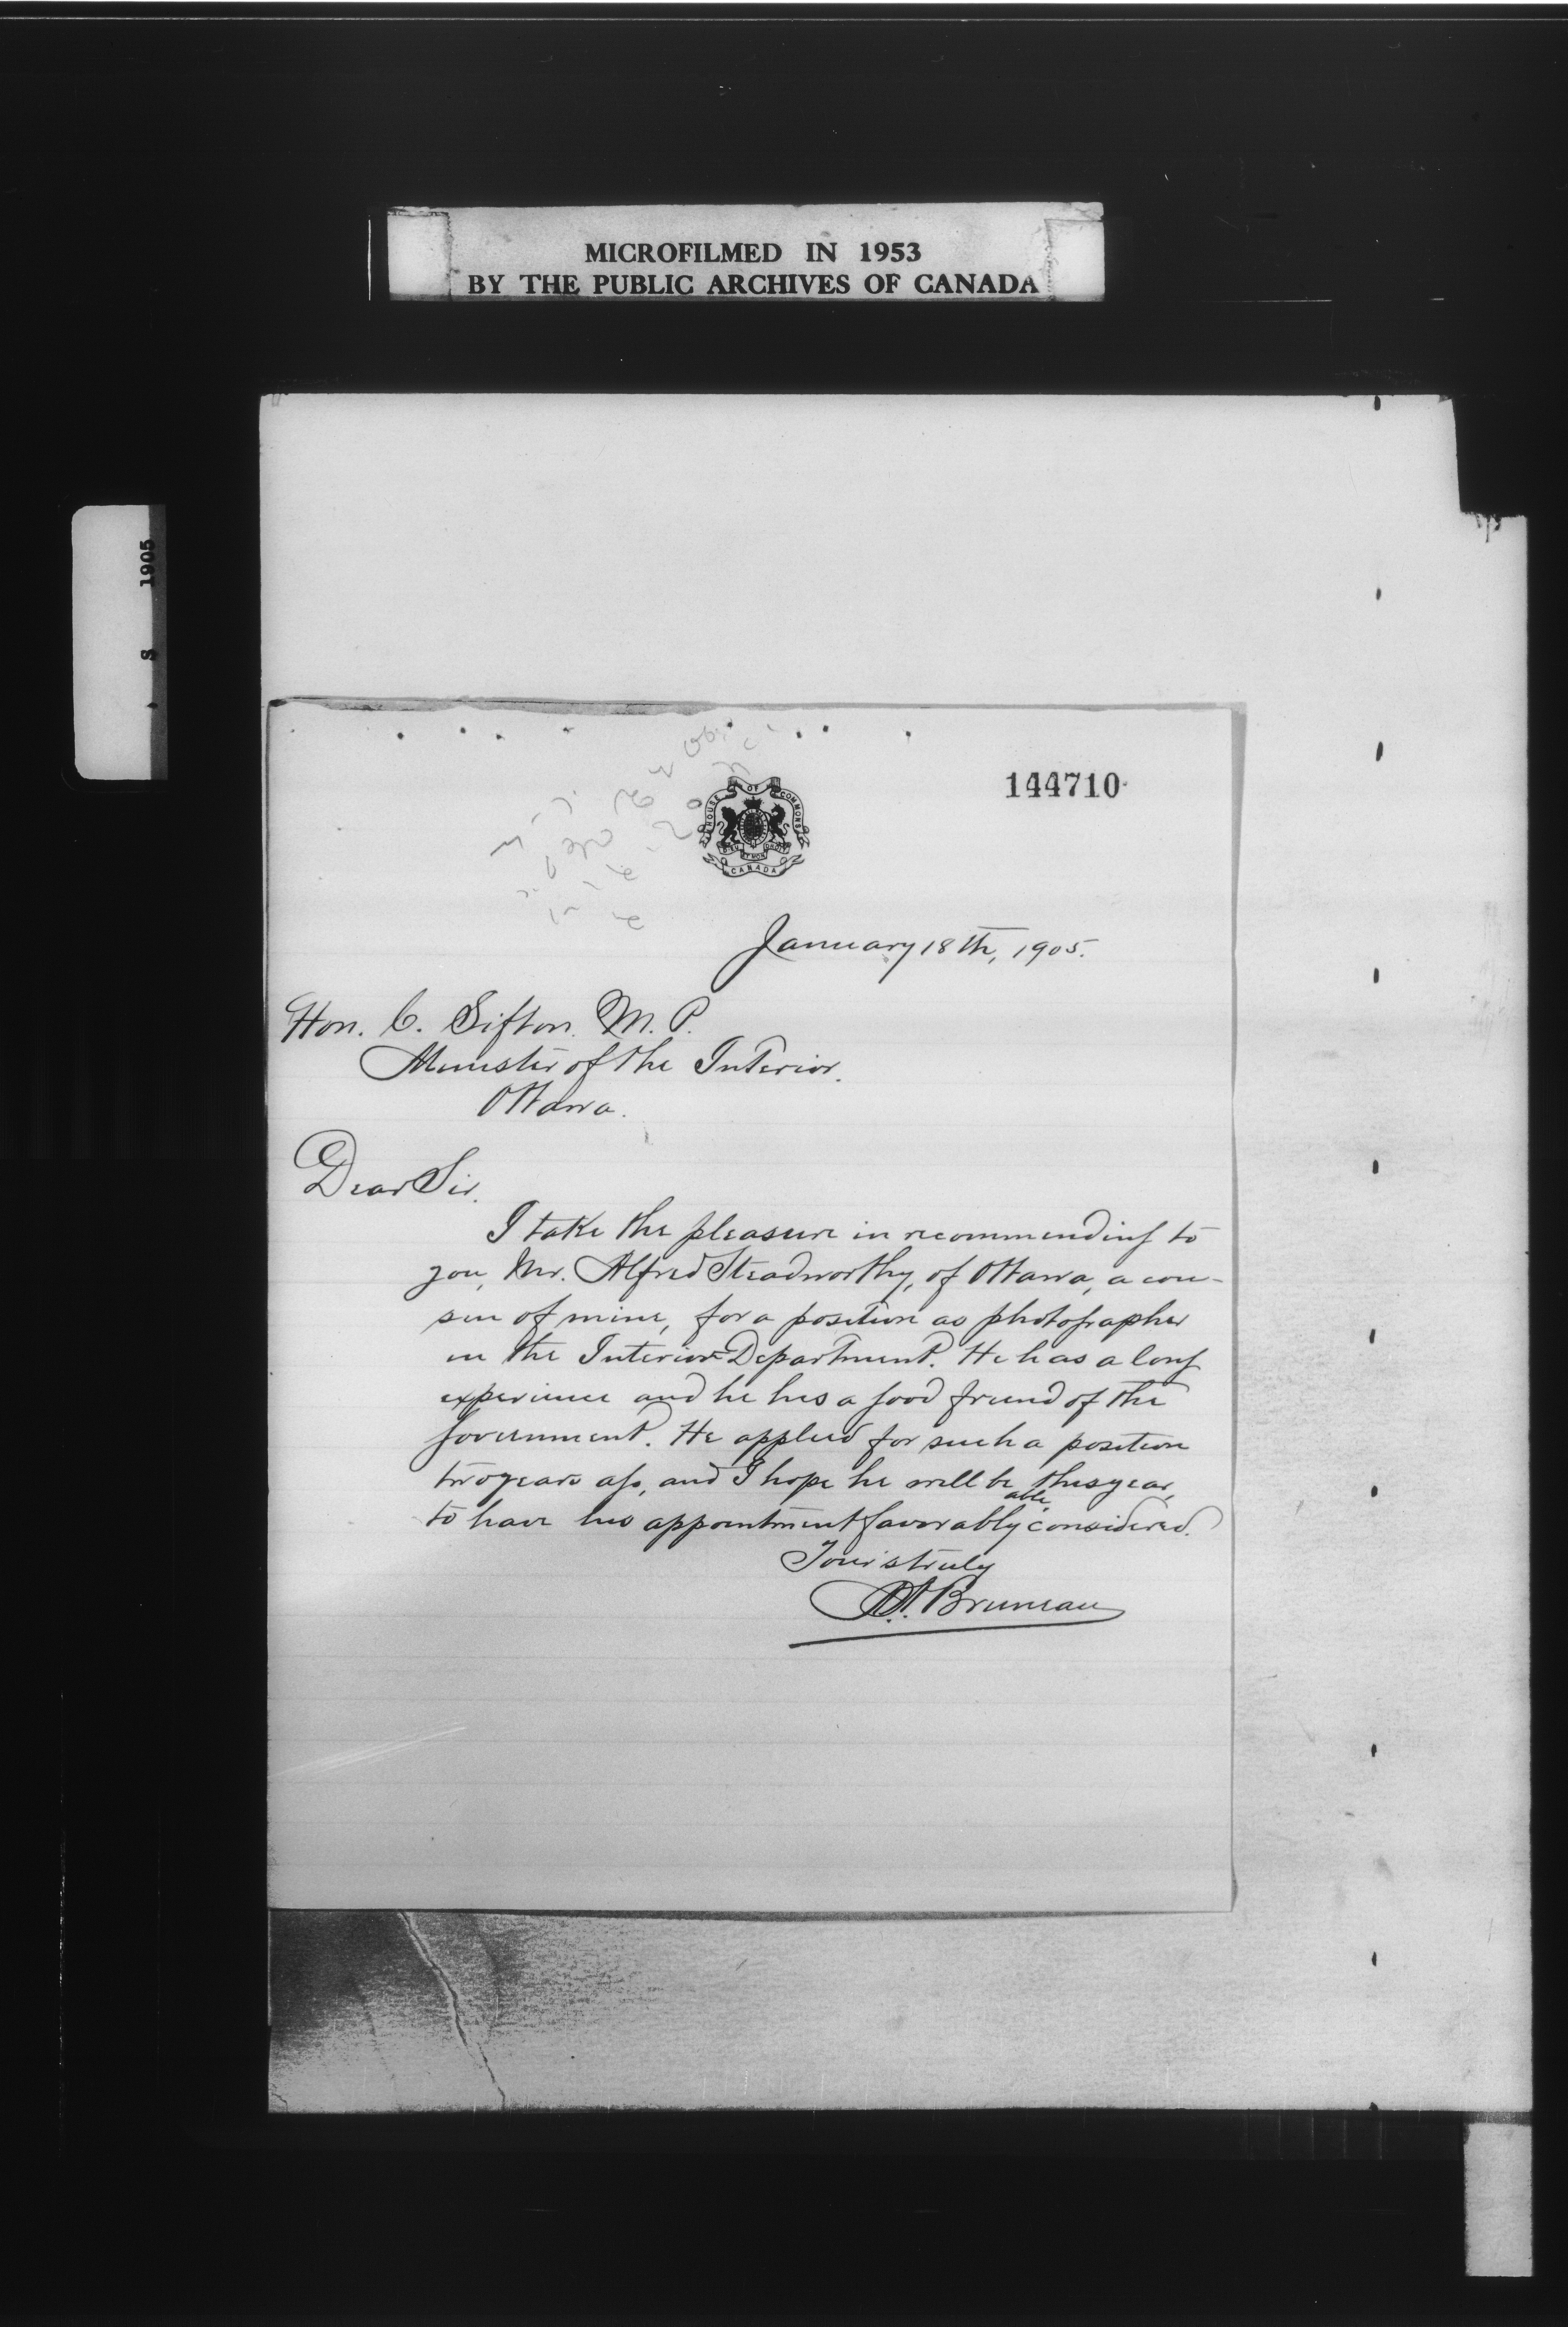 MICROFILMED IN 1953
BY THE PUBLIC ARCHIVES OF CANADA
S 1905
144710
HOUSE OF COMMONS
DIEU ET MON DROIT
CANADA
January 18th, 1905.
Hon. C. Sifton. M. P.
Minister of the Interior.
Ottawa.
Dear Sir.
I take the pleasure in recommending to
you, Mr. Alfred Steadworthy, of Ottawa, a cou-
sin of mine, for a position as photographer
in the Interior Department. He has a long
experience and he his a good friend of the
government. He applied for such a position
two years ago, and I hope he will be able this year,
to have his appointment favorably considered.
Yours truly
Bruneau